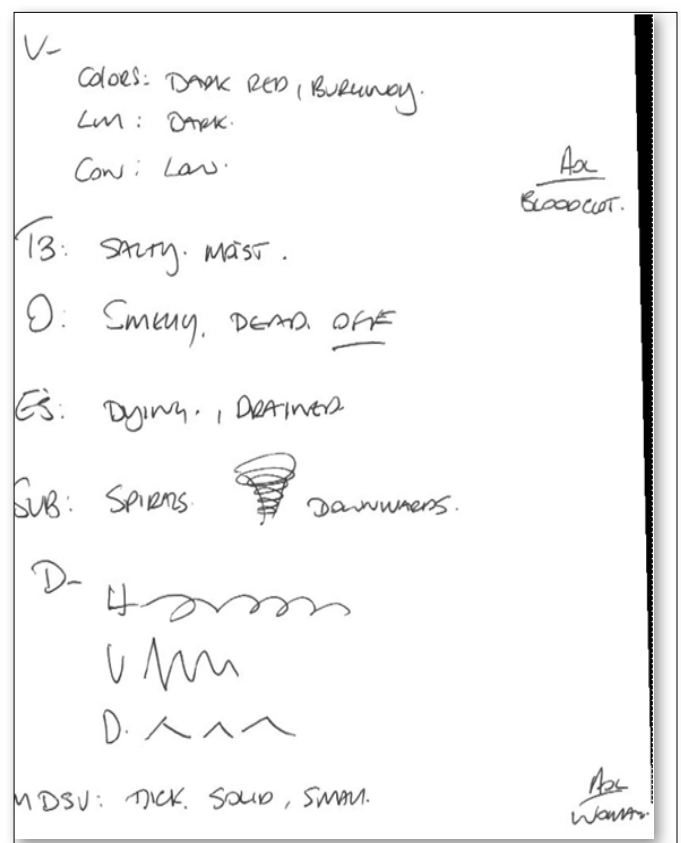 V-
Colors: DARK RED, BURGUNDY.
Lum: DARK.
Con: Low.
AOL
BLOODCLOT.
T3: SALTY. MOIST.
O: SMELLY. DEAD. OFF
ES: DYING., DRAINED
SUB: SPIRALS. DOWNWARDS.
D-
H
V
D.
MDSV: TICK. SOLID, SMALL.
AOL
WOMAN.